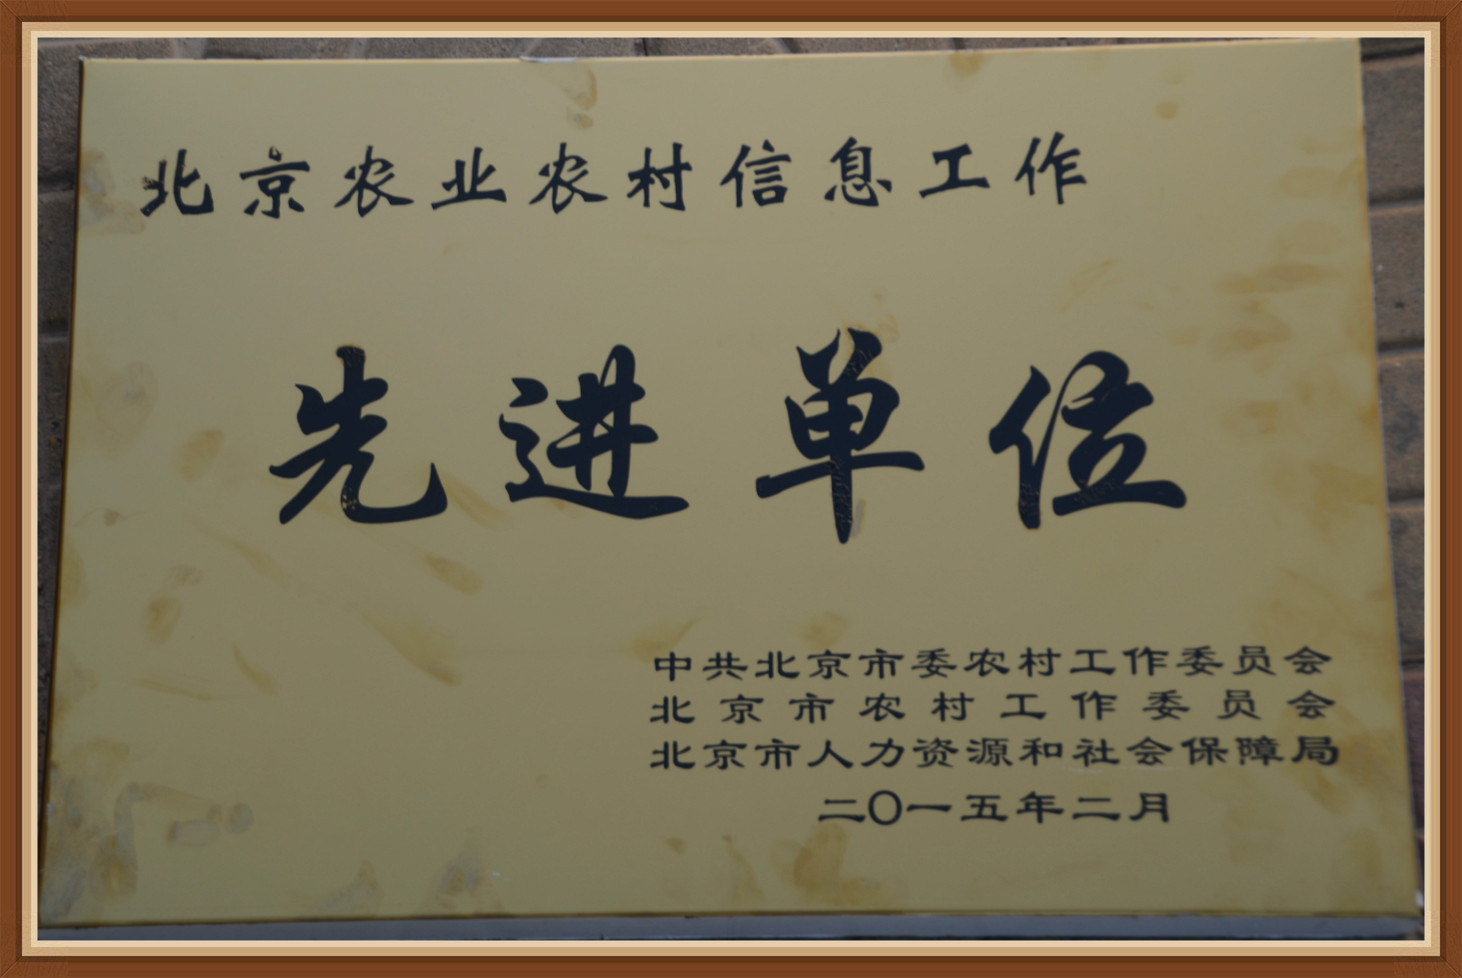 北京农业农村信息工作
先进单位
中共北京市委农村工作委员会
北京市农村工作委员会
北京市人力资源和社会保障局
二〇一五年二月